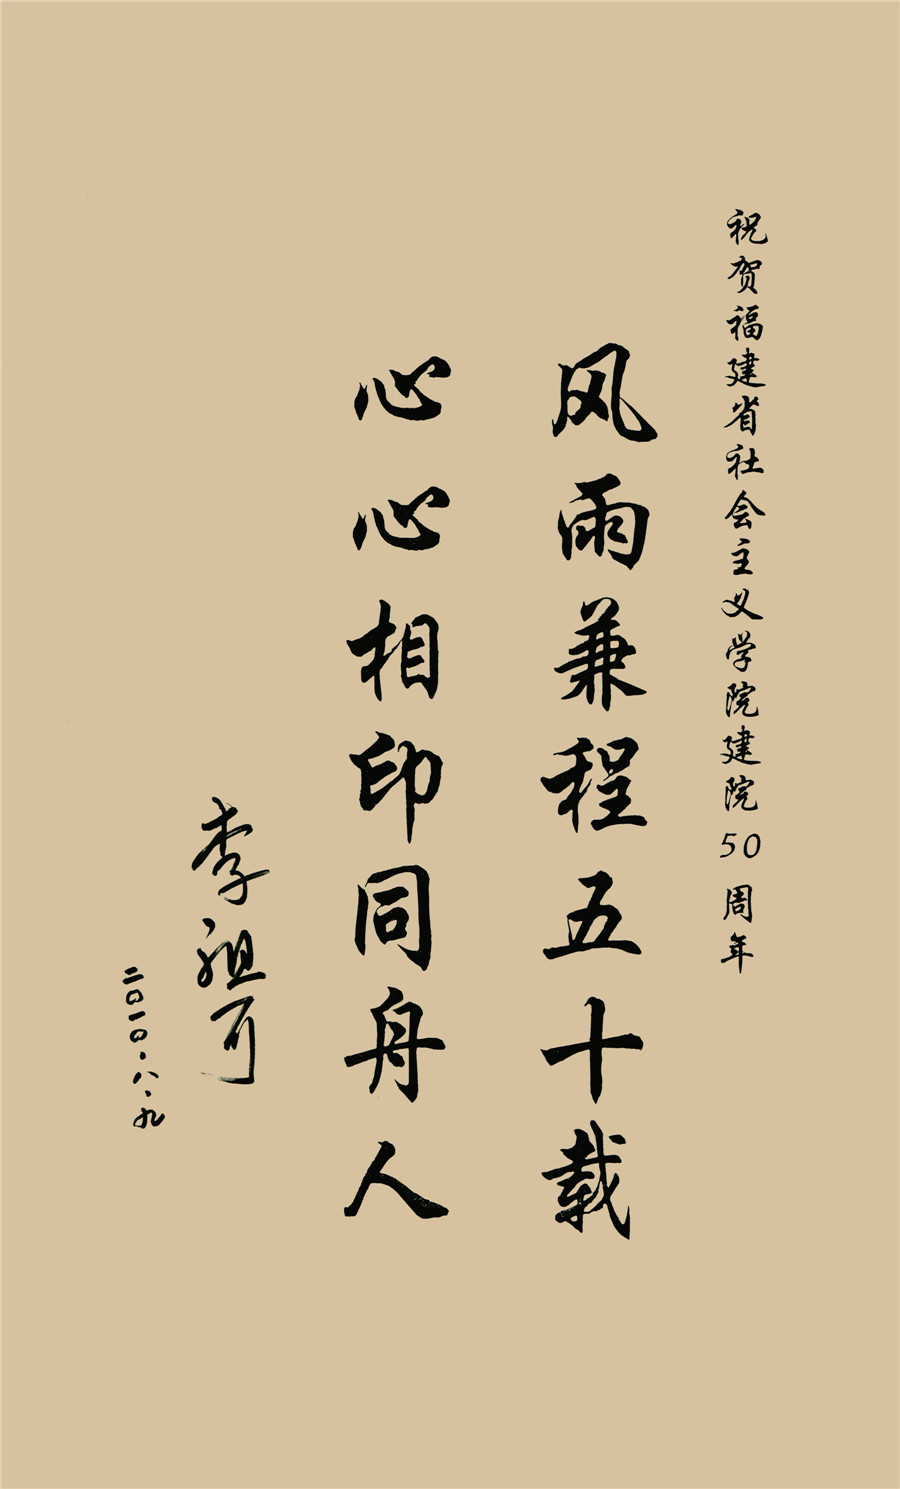 祝贺福建省社会主义学院建院50周年
风雨兼程五十载
心心相印同舟人
李祖可
二〇一〇.八.九